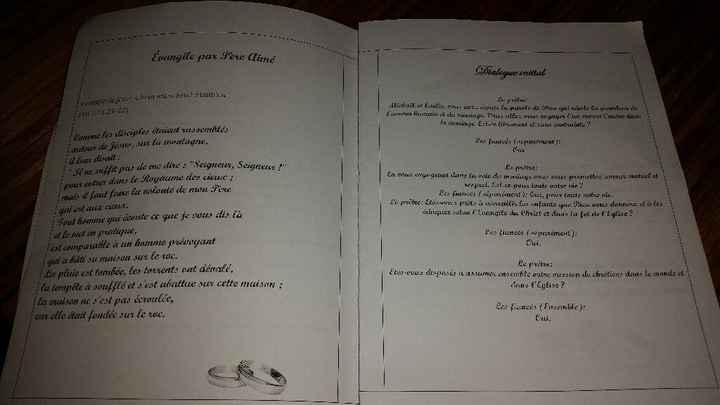 Évangile par Père Aimé
Comme les disciples étaient rassemblés
autour de Jésus, sur la montagne,
il leur disait :
"Il ne suffit pas de me dire : "Seigneur, Seigneur !"
pour entrer dans le Royaume des cieux ;
mais il faut faire la volonté de mon Père
qui est aux cieux.
Tout homme qui écoute ce que je vous dis là
et le met en pratique,
est comparable à un homme prévoyant
qui a bâti sa maison sur le roc.
La pluie est tombée, les torrents ont dévalé,
la tempête a soufflé et s'est abattue sur cette maison ;
la maison ne s'est pas écroulée,
car elle était fondée sur le roc.
Dialogue initial
Le prêtre:
et vous avez écouté la parole de Dieu qui révèle la grandeur de
l'amour humain et du mariage. Vous allez vous engager l'un envers l'autre dans
le mariage. Est-ce librement et sans contrainte ?
Les fiancés (séparément):
Oui
Le prêtre:
En vous engageant dans la voie du mariage vous vous promettez amour mutuel et
respect. Est-ce pour toute votre vie ?
Les fiancés (séparément): Oui, pour toute notre vie.
Le prêtre: Etes-vous prêts à accueillir les enfants que Dieu vous donnera et à les
éduquer selon l'Evangile du Christ et dans la foi de l'Eglise ?
Les fiancés (séparément):
Oui.
Le prêtre:
Etes-vous disposés à assumer ensemble votre mission de chrétiens dans le monde et
dans l'Eglise ?
Les fiancés (Ensemble):
Oui.